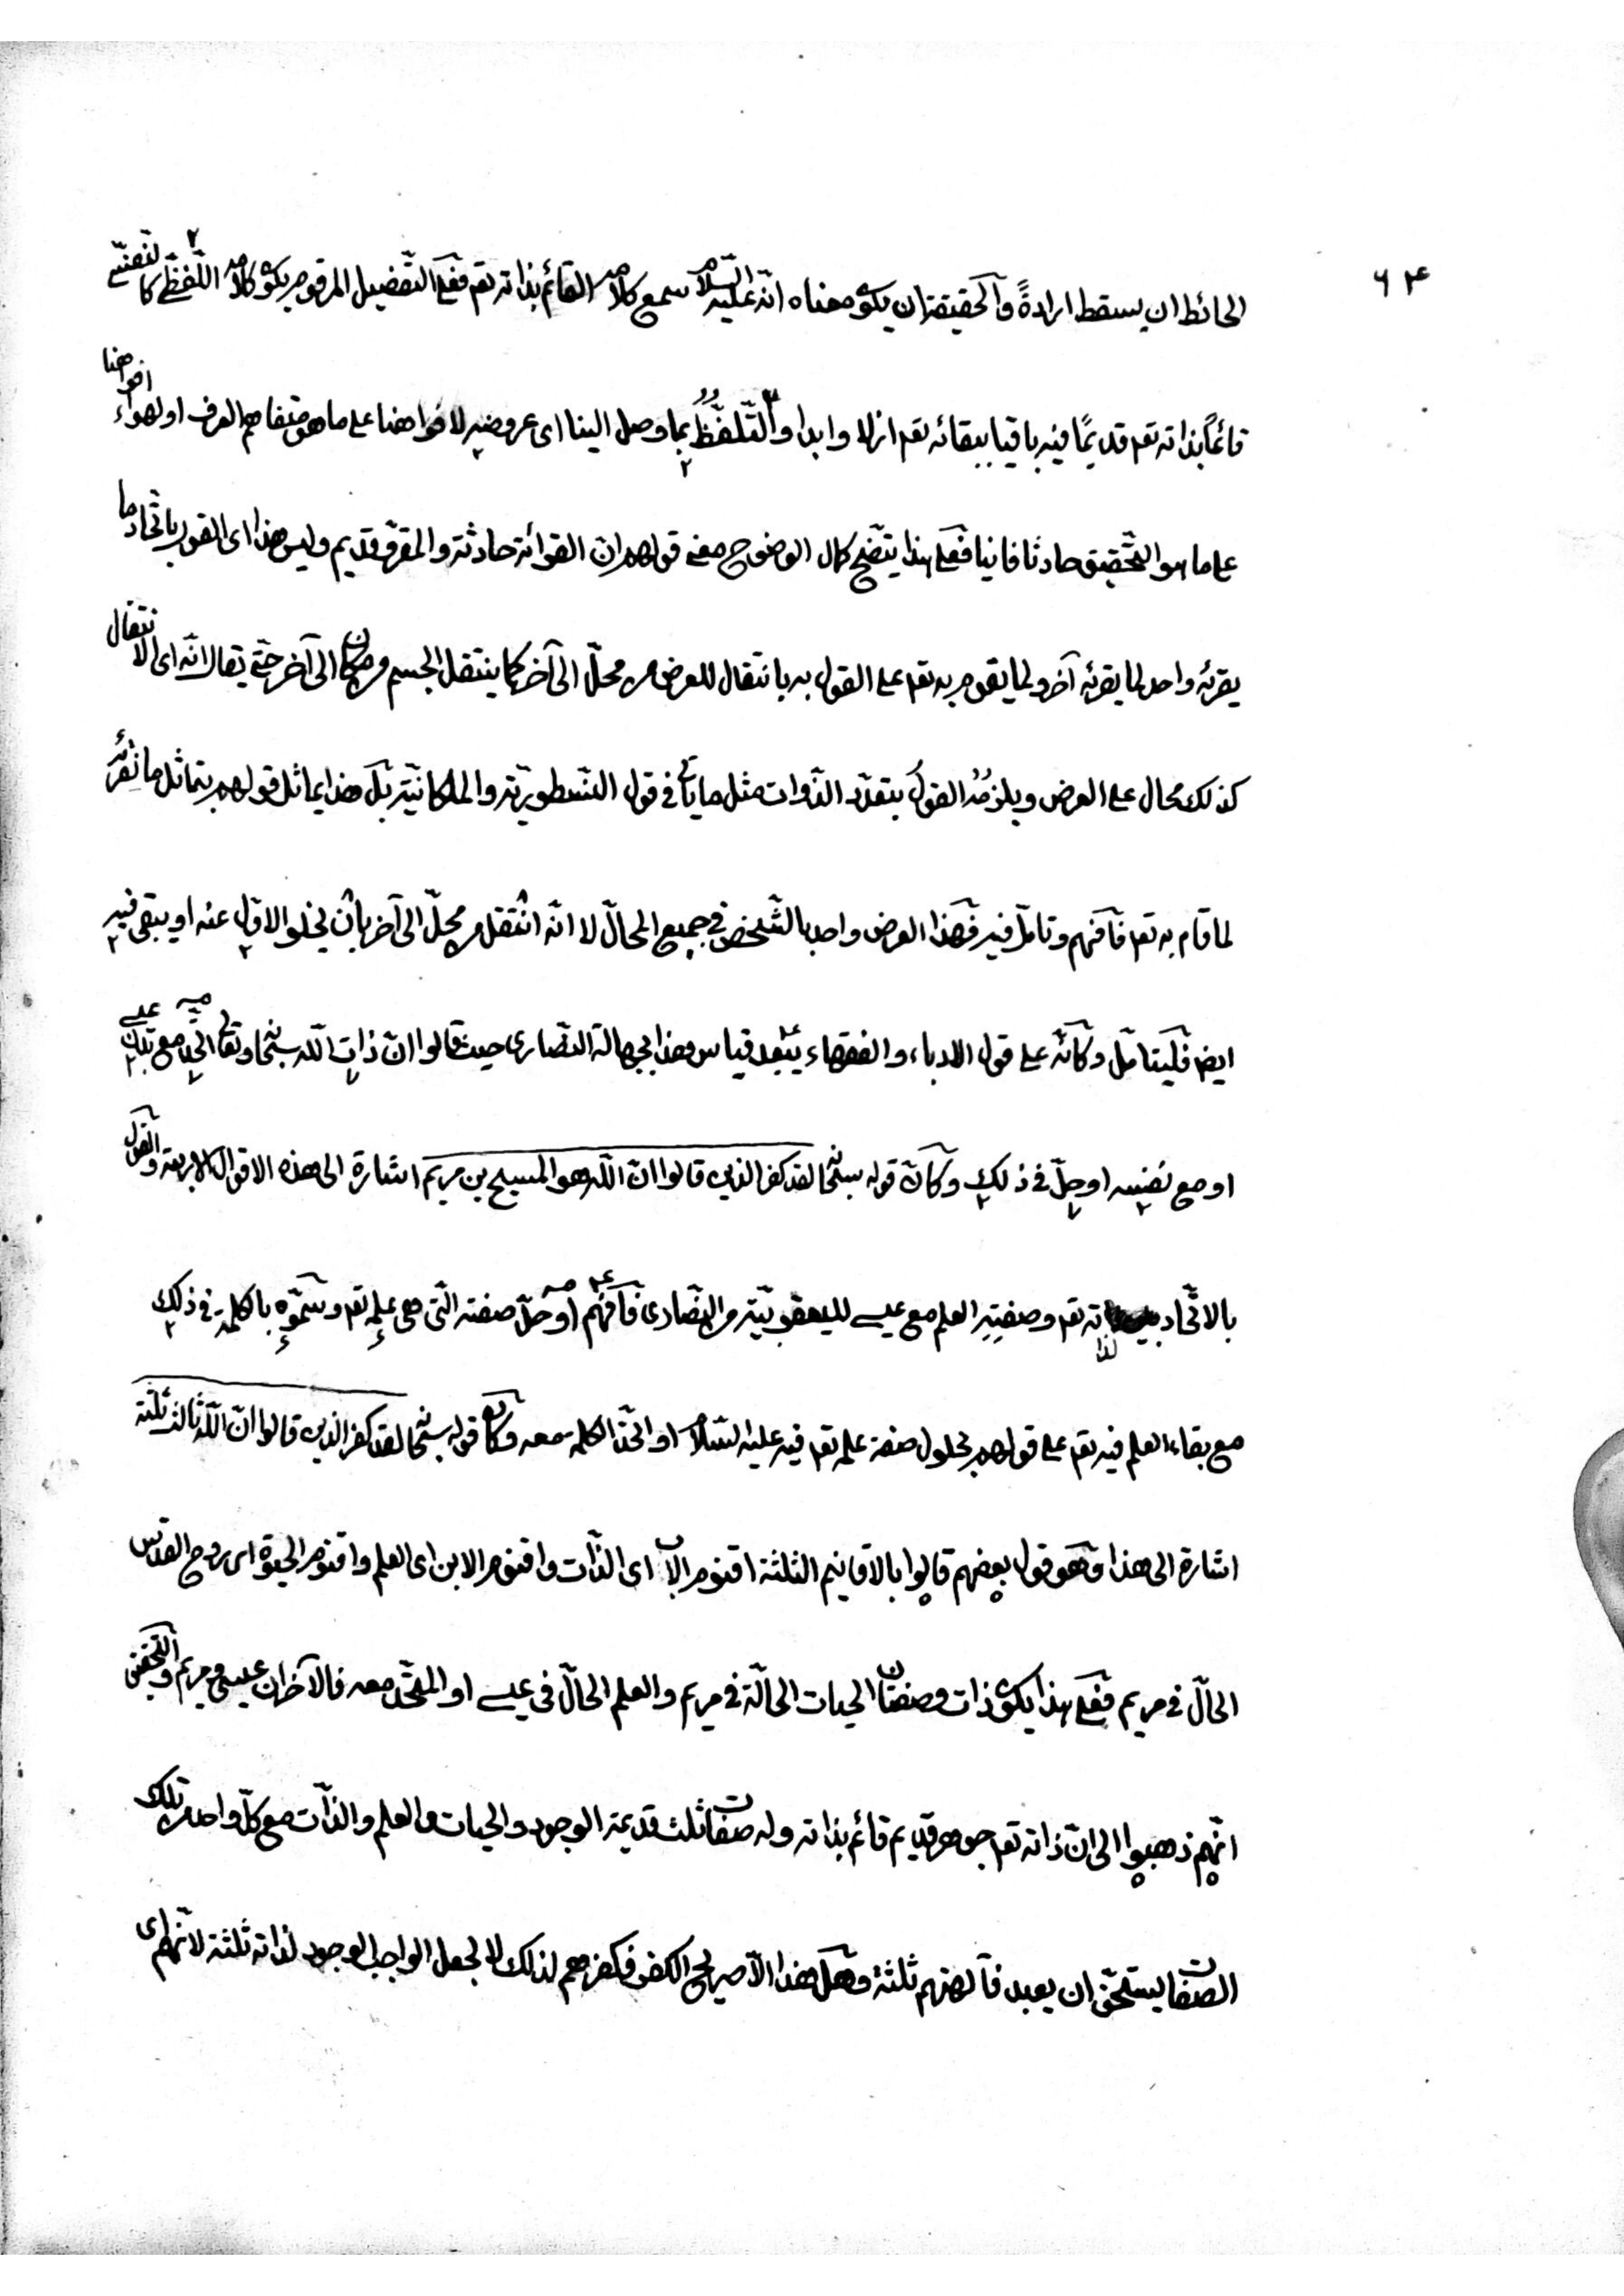 ٦٤
الحائط ان يسقط ارادةً والحقيقة ان يكون معناه انّه عليه السّلام سمع كلامه القائم بذاته تعم فعلى التفضيل المرقوم يكون كلامه اللّفظى كالنفسى
قائمًا بذاته تعم قديمًا فيه باقيا ببقائه تعم ازلا وابدا والتّلفّظُ بما وصل الينا اى عروضه لافواهنا على ما هو متفاهم العرف او لهواء افواهنا
على ما هو التحقيق حادثا فانيا فعلى هذا يتضح كمال الوضوح معنى قولهم ان القرائة حادثة والمقرّو قديم وليس هذا اى القول باتّحاد ما
يقرئه واحد لما يقرئه آخر ولما يقوم به تعم على القول به بانتقال للعرض من محلّ الى آخر كما ينتقل الجسم من مكان الى آخر حتّى يقال انّه اى الانتقال
كذلك محال على العرض ويلزمُه القولُ بتعدّد الذّوات مثل ما يأتى فى قول النّسطوريّة والملكانيّة بل هذا يماثل قولهم بتماثل ما نقرئه
لما قام به تعم فافهم وتامّل فيه فهذا العرض واحد بالشّخص فى جميع المحالّ لا انّه انتقل من محلّ الى آخر بان يخلو الاوّل عنه او يبقى فيه
ايضا فليتامّل وكانّه على قول الادباء والفقهاء يبعد قياس هذا بجهالة النّصارى حيث قالوا انّ ذات اللّه سبحانه وتعالى اتّحد مع بدن عيسى
او مع نفسه او حلّ فى ذلك وكانّ قوله سبحانه لقد كفر الذين قالوا انّ اللّه هو المسيح بن مريم اشارة الى هذه الاقوال الاربعة والقول
بالاتّحاد لذاته تعم وصفتِه العلم مع عيسى لليعقوبيّة من النّصارى فافهم او حلّ صفته التّى هى علمه تعم وسمّوه بالكلمة فى ذلك
مع بقاء العلم فيه تعم على قولهم بحلول صفة علمه تعم فيه عليه السّلام او اتحاد الكلمة معه وكان قوله سبحانه لقد كفر الذين قالوا انّ اللّه ثالث ثلثة
اشارة الى هذا وهو قول بعضهم قالوا بالاقانيم الثلثة اقنوم الاب اى الذّات واقنوم الابن اى العلم واقنوم الحيوة اى روح القدس
الحالّ فى مريم فعلى هذا يكون ذات وصفتان الحيات الحالّة فى مريم والعلم الحالّ فى عيسى او المتّحد معه فالآخران عيسى ومريم والتحقيق
انّهم ذهبوا الى انّ ذاته تعم جوهر قديم قائم بذاته وله صفات ثلث قديمة الوجود والحيات والعلم والذّات مع كلّ واحد من تلك
الصفات يستحقّ ان يعبد فآلهتهم ثلثة وهل هذا الّا صريح الكفر فكفرهم لذلك لا لجعل الواجب الوجود لذاته ثلثة لانّهم اى